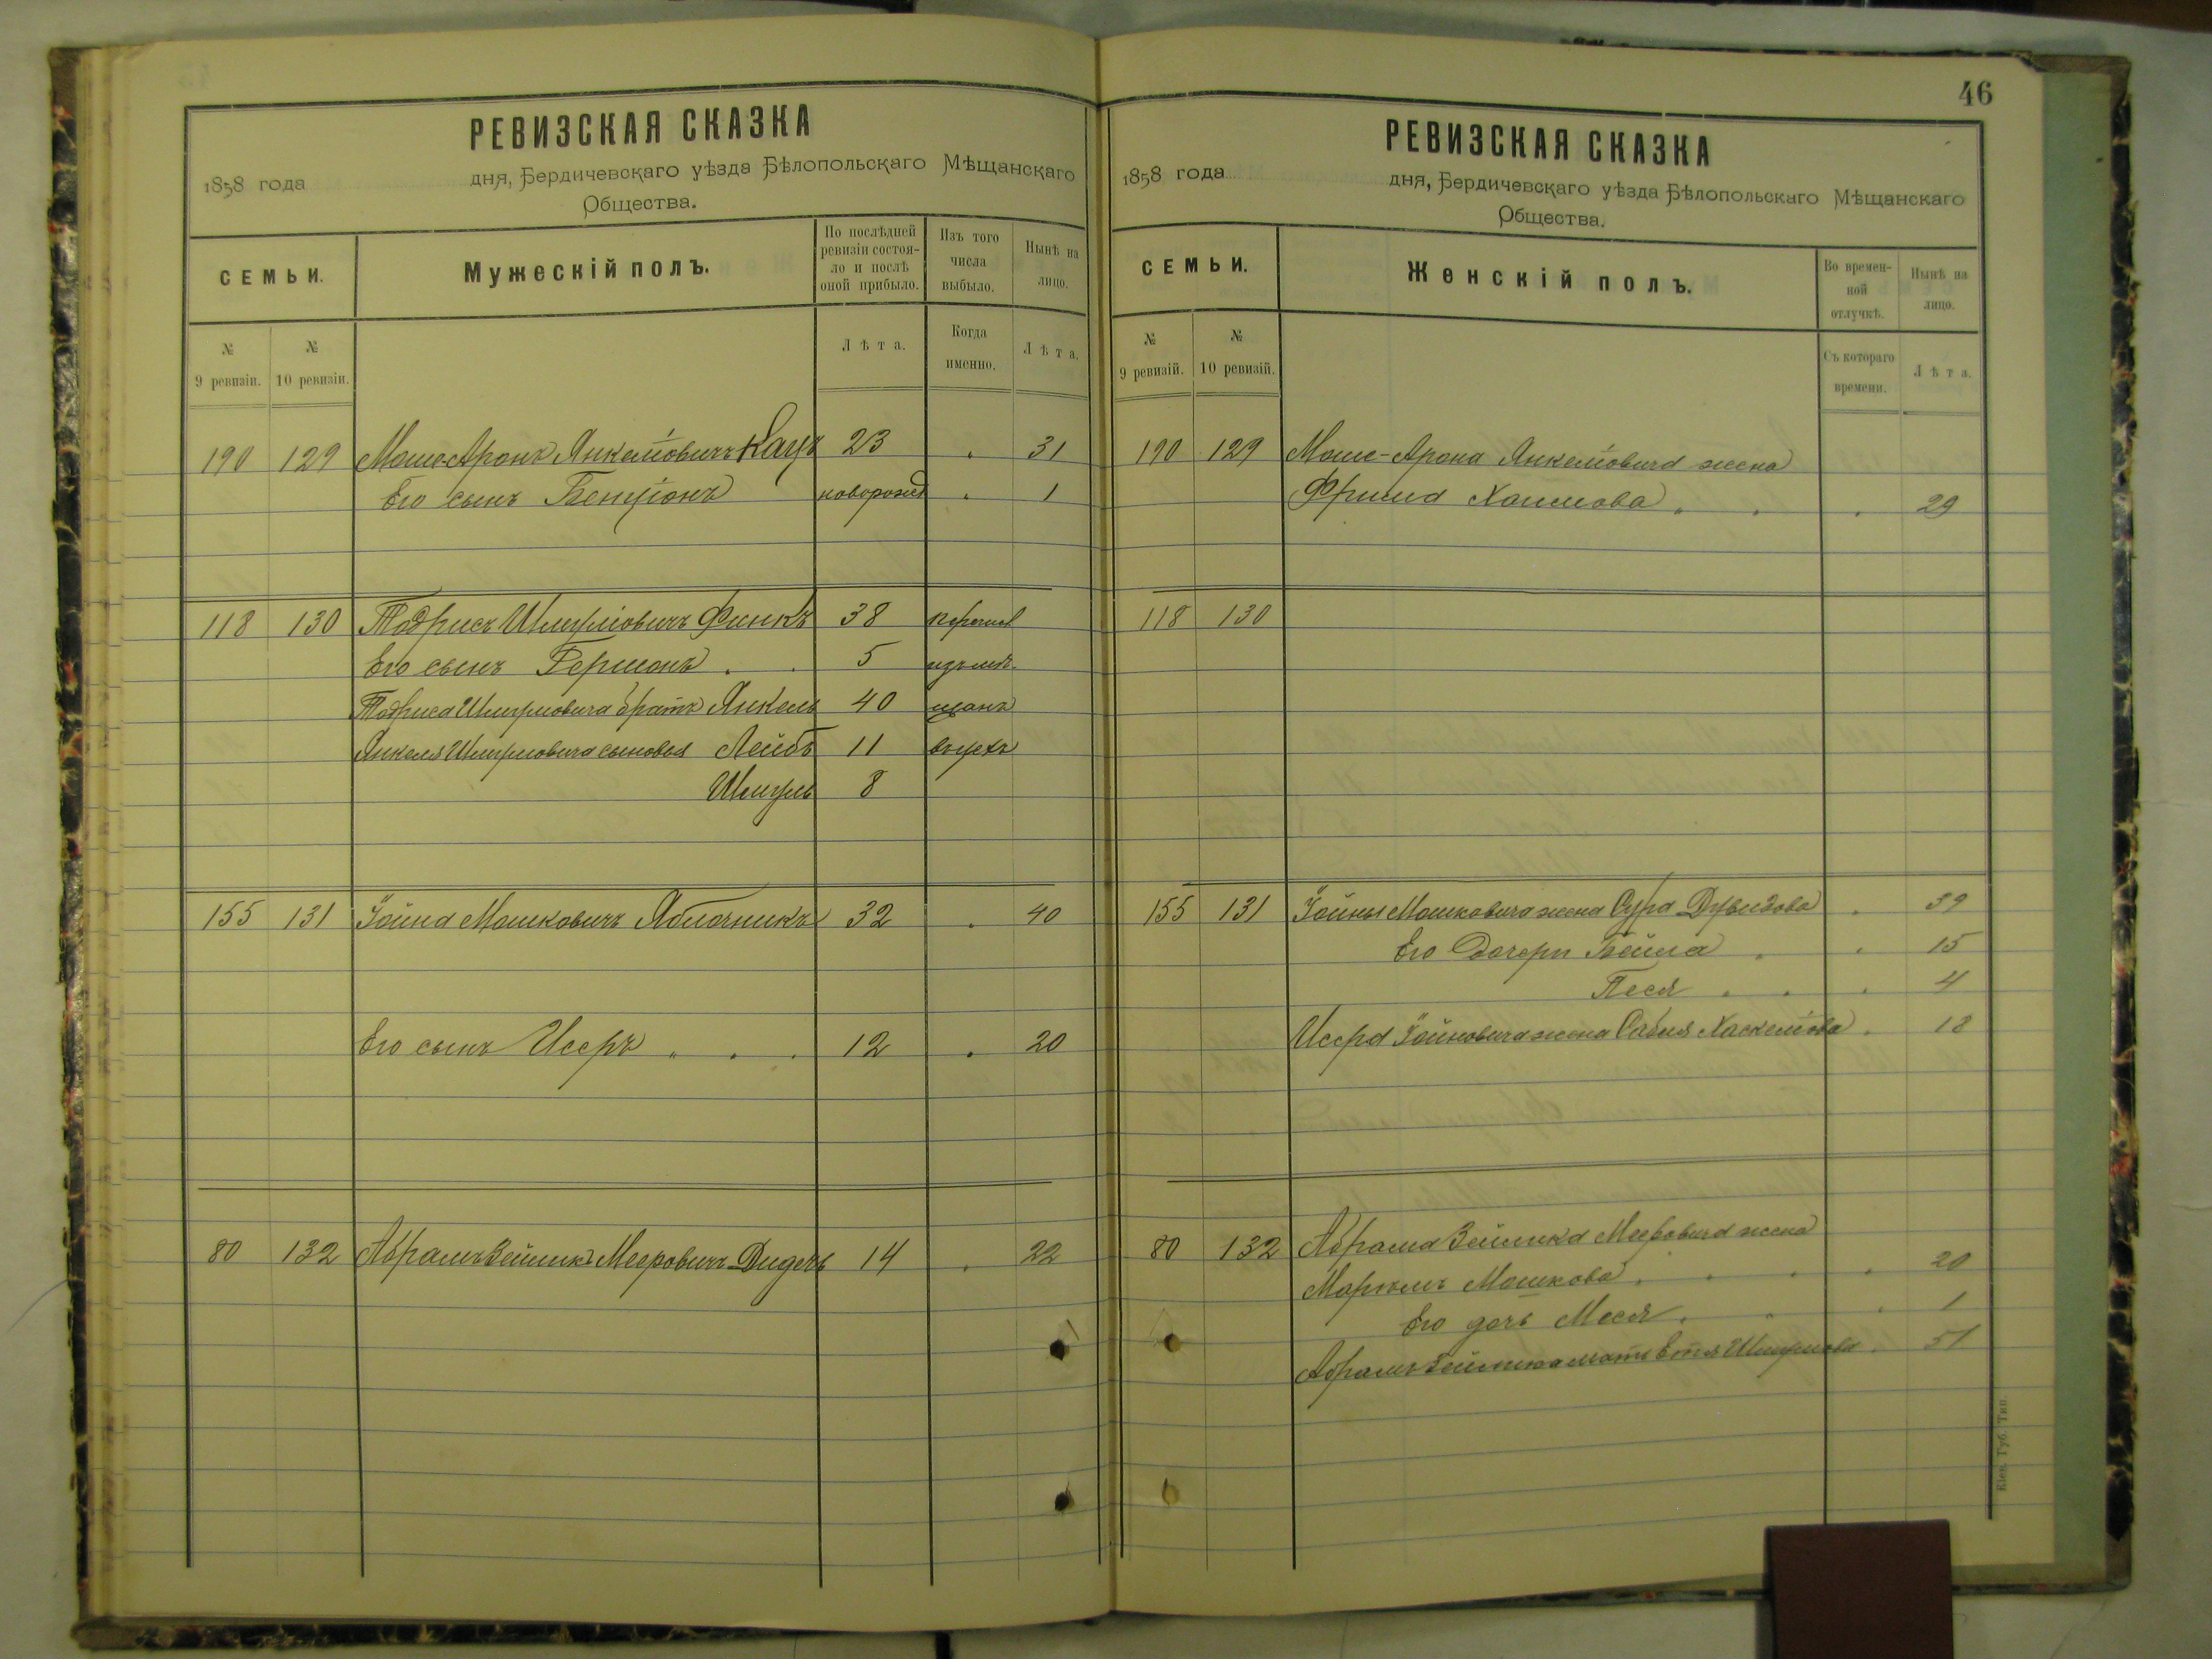 РЕВИЗСКАЯ СКАЗКА
1858 года дня, Бердичевскаго уѣзда Бѣлопольскаго Мѣщанскаго
Общества.
СЕМЬИ.
Мужескій полъ.
По послѣдней ревизіи состоя-ло и послѣ оной прибыло.
Изъ того числа выбыло.
Нынѣ на лицо.
№ 9 ревизіи.
№ 10 ревизіи.
Лѣта.
Когда именно.
Лѣта.
190 129 Моше-Аронъ Янкелiовичъ Кацъ 23 31
Его сынъ Бенціонъ новорожд 1
118 130 Тодрисъ Шмулiовичъ Финкъ 38 перечисл
Его сынъ Гершонъ 5 изъ мѣ-
Тодриса Шмулiовича братъ Янкель 40 щанъ
Янкеля Шмулiовича сыновья Лейбъ 11 въ цехъ
Шмуль 8
155 131 Іойна Мошковичъ Яблочникъ 32 40
Его сынъ Исеръ 12 20
80 132 Абрамъ Зейликъ Мееровичъ 14 22
46
РЕВИЗСКАЯ СКАЗКА
1858 года дня, Бердичевскаго уѣзда Бѣлопольскаго Мѣщанскаго
Общества.
СЕМЬИ.
Женскій полъ.
Во времен-ной отлучкѣ.
Нынѣ на лицо.
№ 9 ревизій.
№ 10 ревизій.
Съ котораго времени.
Лѣта.
190 129 Моше-Арона Янкелiовича жена
Фрима Хаимова 29
118 130
155 131 Іойны Мошковича жена Сура Дувидова 39
Его дочери Бейла 15
Песя 4
Исера Іойновича жена Хаскелiова 18
80 132 Абрама Зейлика Мееровича жена
Маріямъ Мошкова 20
Его дочь Меся 1
Абрамъ Зейлика мать Етя Шмулiова 51
Кіев. Губ. Тип.